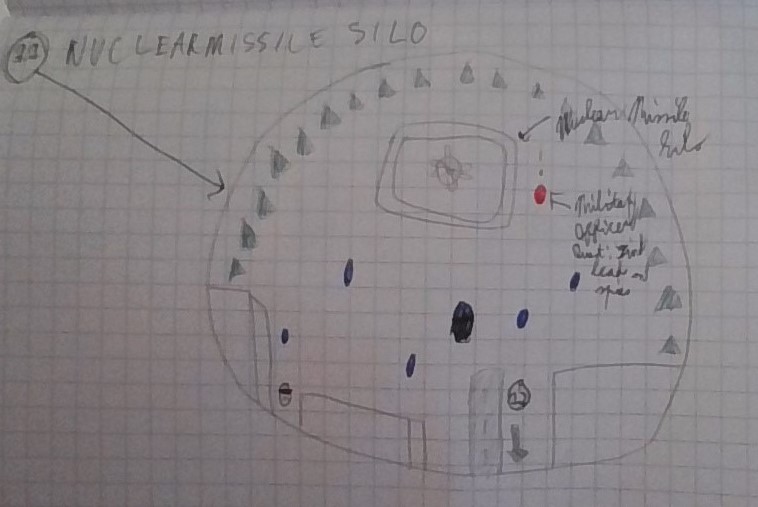 11 NUCLEARMISSILE SILO
Nuclear Missile
Silo
Military
Officer
Quest: Find
leak or
spies